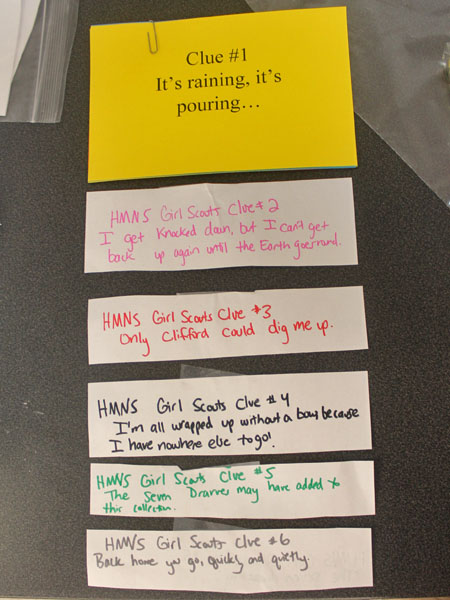 Clue #1
It's raining, it's
pouring...
HMNS Girl Scouts Clue #2
I get knocked down, but I can't get
back up again until the Earth goes round.
HMNS Girl Scouts Clue #3
Only Clifford could dig me up.
HMNS Girl Scouts Clue #4
I'm all wrapped up without a bow because
I have nowhere else to go!
HMNS Girl Scouts Clue #5
The Seven Dwarves may have added to
this collection.
HMNS Girl Scouts Clue #6
Back home you go, quickly and quietly.